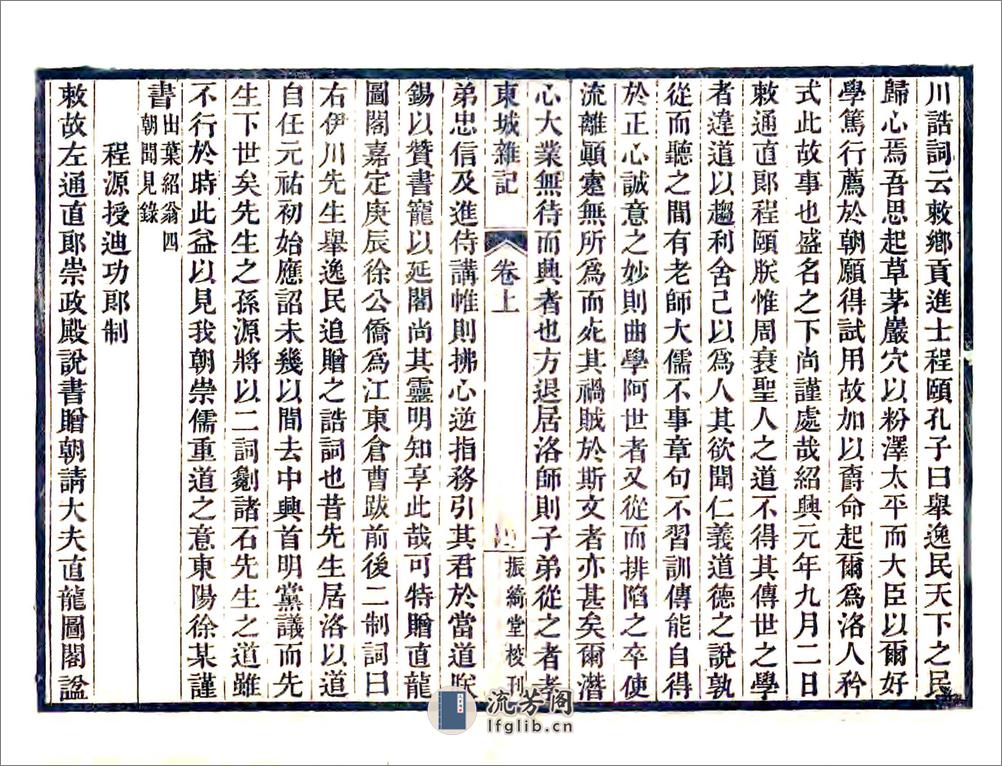 川誥詞云敕鄉貢進士程頤孔子曰舉逸民天下之民
歸心焉吾思起草茅巖穴以粉澤太平而大臣以爾好
學篤行薦於朝願得試用故加以爵命起爾為洛人矜
式此故事也盛名之下尚謹處哉紹興元年九月二日
敕通直郎程頤朕惟周衰聖人之道不得其傳世之學
者違道以趨利舍己以為人其欲聞仁義道德之說孰
從而聽之間有老師大儒不事章句不習訓傳能自得
於正心誠意之妙則曲學阿世者又從而排陷之卒使
流離顛寔無所為而死其禍賊於斯文者亦甚矣爾潛
心大業無待而興者也方退居洛師則子弟從之者孝
東城雜記
卷上
振綺堂校刊
弟忠信及進侍講帷則拂心逆指務引其君於當道朕
錫以贊書寵以延閣尚其靈明知享此哉可特贈直龍
圖閣嘉定庚辰徐公僑為江東倉曹跋前後二制詞曰
右伊川先生舉逸民追贈之誥詞也昔先生居洛以道
自任元祐初始應詔未幾以間去中興首明黨議而先
生下世矣先生之孫源將以二詞劖諸石先生之道雖
不行於時此益以見我朝崇儒重道之意東陽徐某謹
書
出葉紹翁四
朝聞見錄
程源授迪功郎制
敕故左通直郎崇政殿說書贈朝請大夫直龍圖閣諡
流芳阁
lfglib.cn